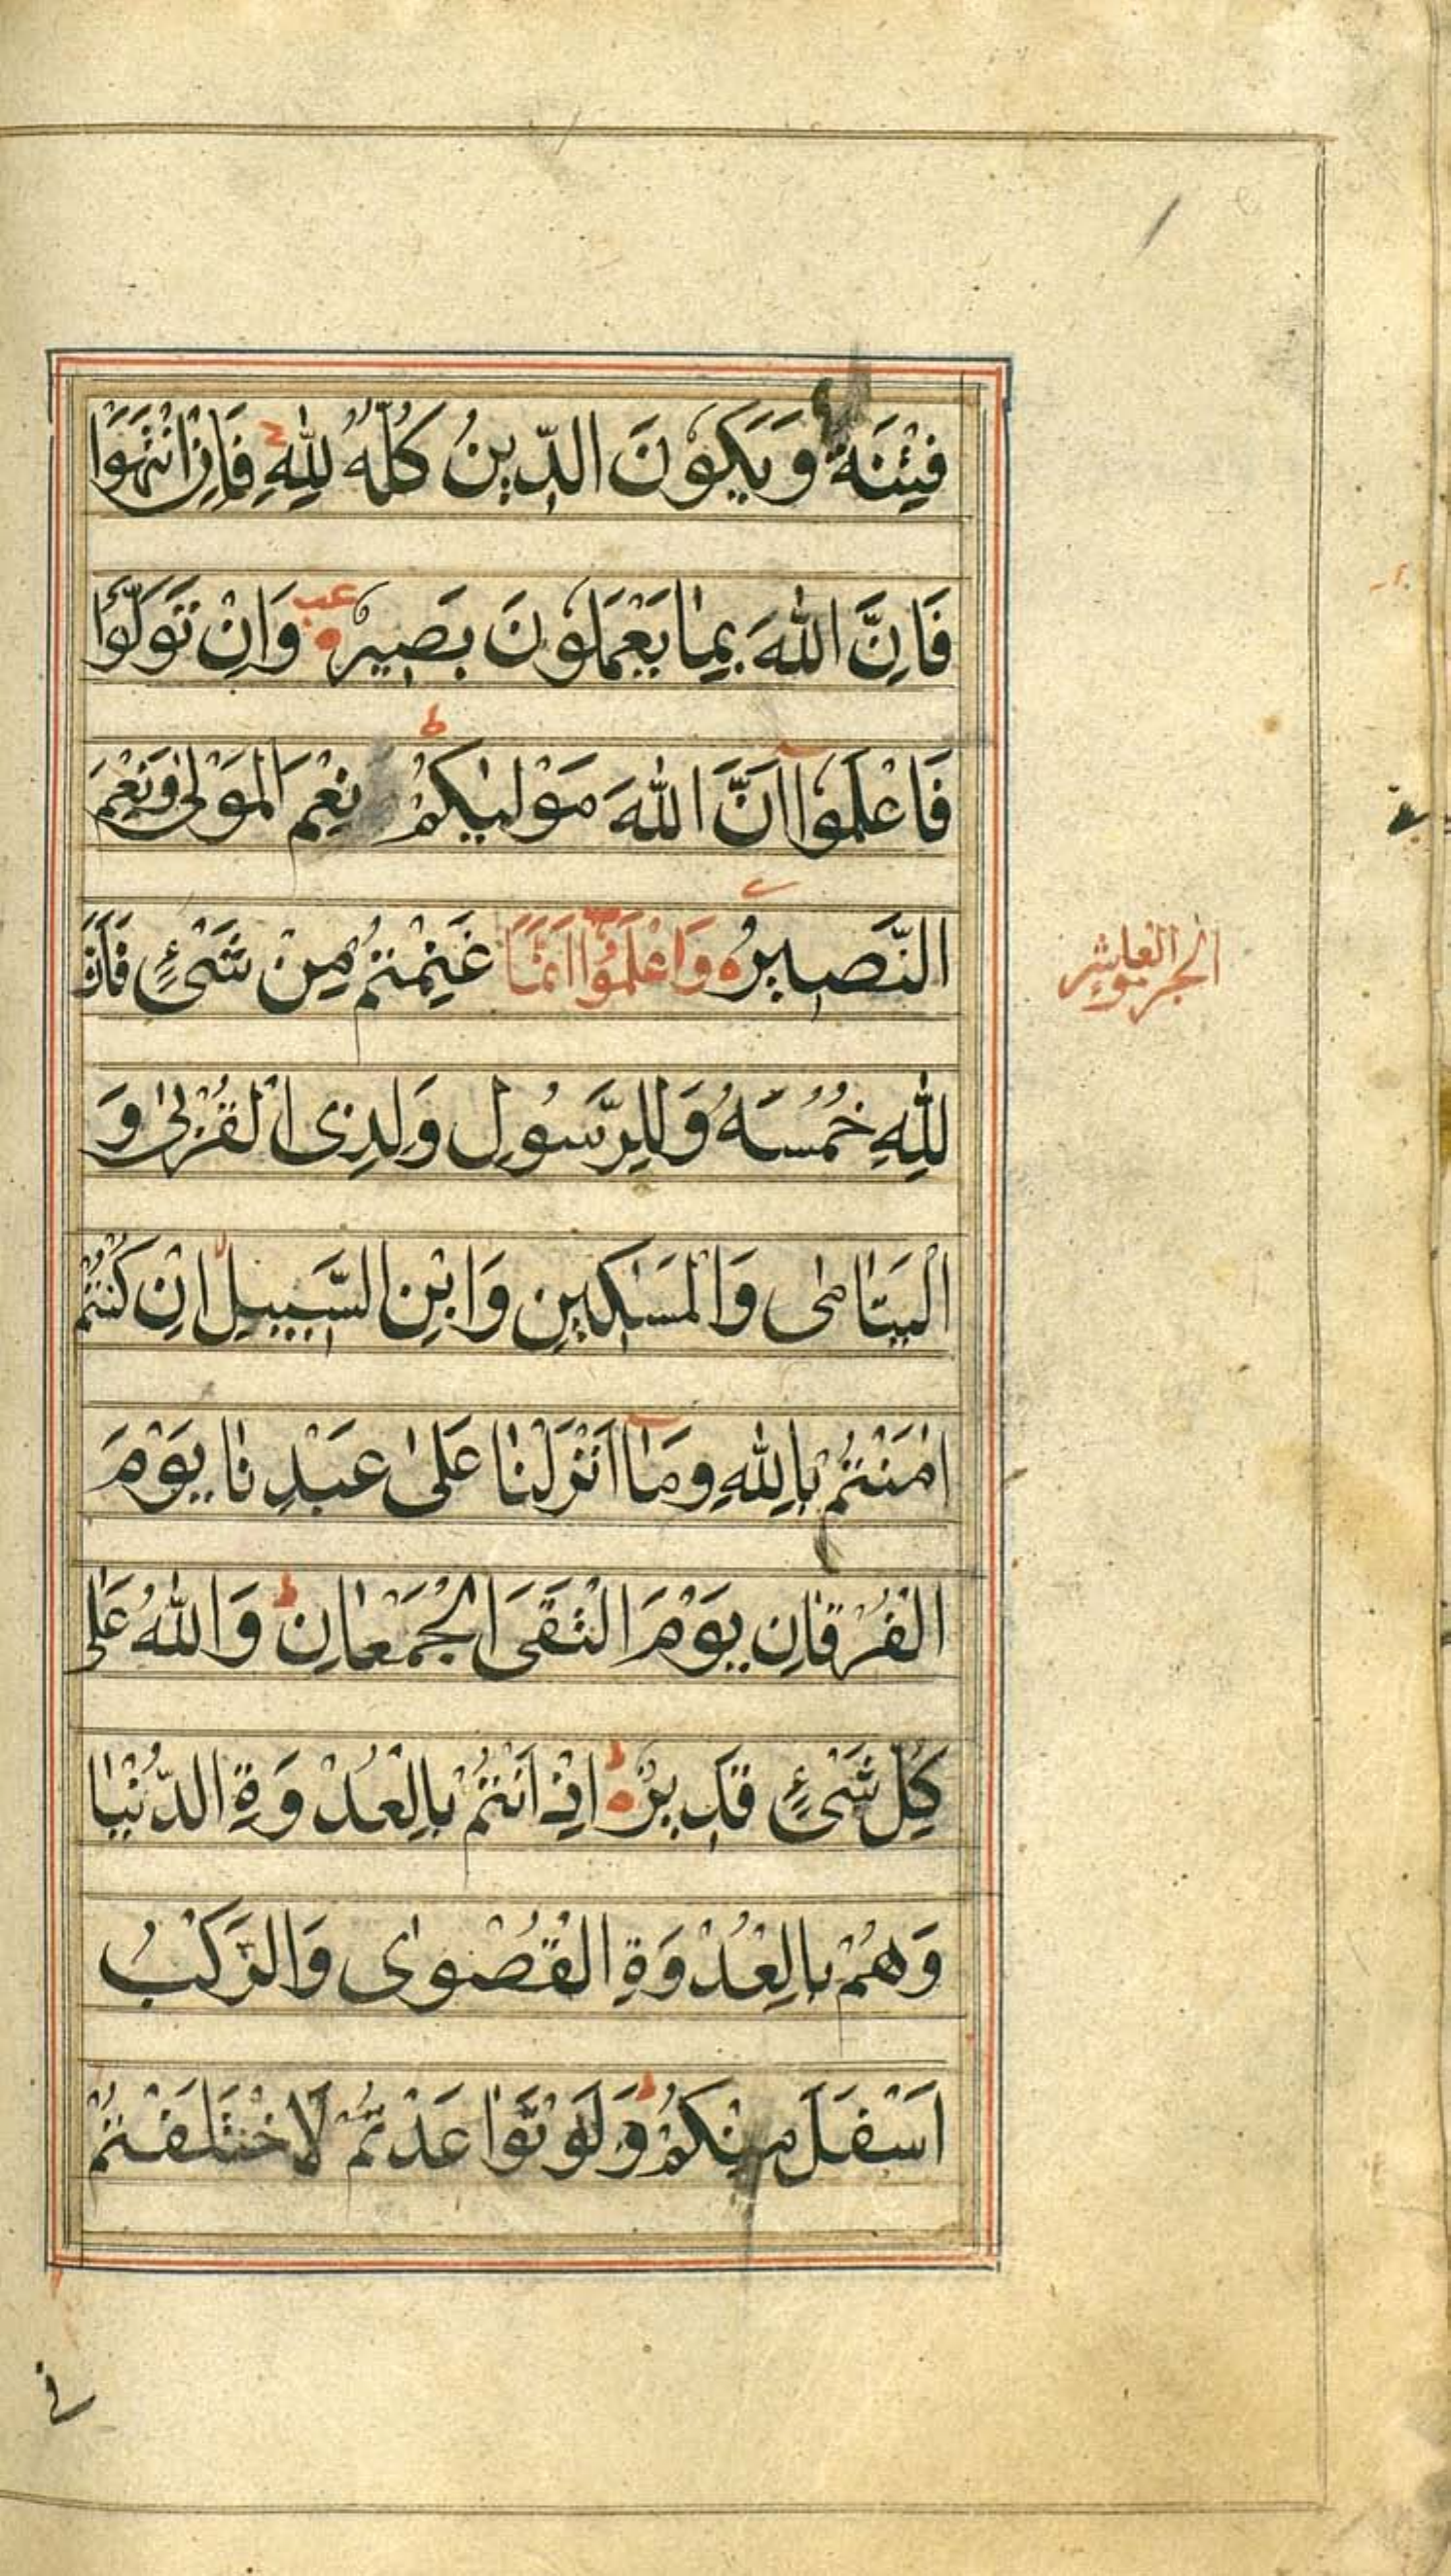 فِتْنَةٌ وَيَكُوْنَ الدِّيْنُ كُلُّهُ لِلّٰهِ فَاِنِ انْتَهَوْا
فَاِنَّ اللّٰهَ بِمَا يَعْمَلُوْنَ بَصِيْرٌ عب وَاِنْ تَوَلَّوْا
فَاعْلَمُوْۤا اَنَّ اللّٰهَ مَوْلٰىكُمْ ط نِعْمَ الْمَوْلٰى وَنِعْمَ
النَّصِيْرُ وَاعْلَمُوْۤا اَنَّمَا غَنِمْتُمْ مِنْ شَىْءٍ فَاَنَّ
الجزء العاشر
لِلّٰهِ خُمُسَهُ وَلِلرَّسُوْلِ وَلِذِى الْقُرْبٰى وَ
الْيَتَامٰى وَالْمَسٰكِيْنِ وَابْنِ السَّبِيْلِ اِنْ كُنْتُمْ
اٰمَنْتُمْ بِاللّٰهِ وَمَاۤ اَنْزَلْنَا عَلٰى عَبْدِنَا يَوْمَ
الْفُرْقَانِ يَوْمَ الْتَقَى الْجَمْعَانِ ط وَاللّٰهُ عَلٰى
كُلِّ شَىْءٍ قَدِيْرٌ اِذْ اَنْتُمْ بِالْعُدْوَةِ الدُّنْيَا
وَهُمْ بِالْعُدْوَةِ الْقُصْوٰى وَالرَّكْبُ
اَسْفَلَ مِنْكُمْ ط وَلَوْ تَوَاعَدْتُمْ لَاخْتَلَفْتُمْ
فى